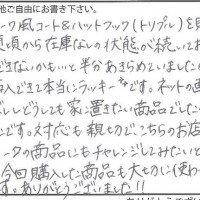 他ご自由にお書き下さい。
ーク風コート&ハットフック(トリプル)を見
頃から在庫なしの状態が続いてお
できないかも…と半分あきらめていましたが
入できて本当にラッキーです。ネットの画
しいしどうしても家に置きたい商品でした
です。対応も親切で、こちらのお店
ータの商品にもチャレンジしてみたいと
今回購入した商品も大切に(使わ
す。ありがとうございました!!